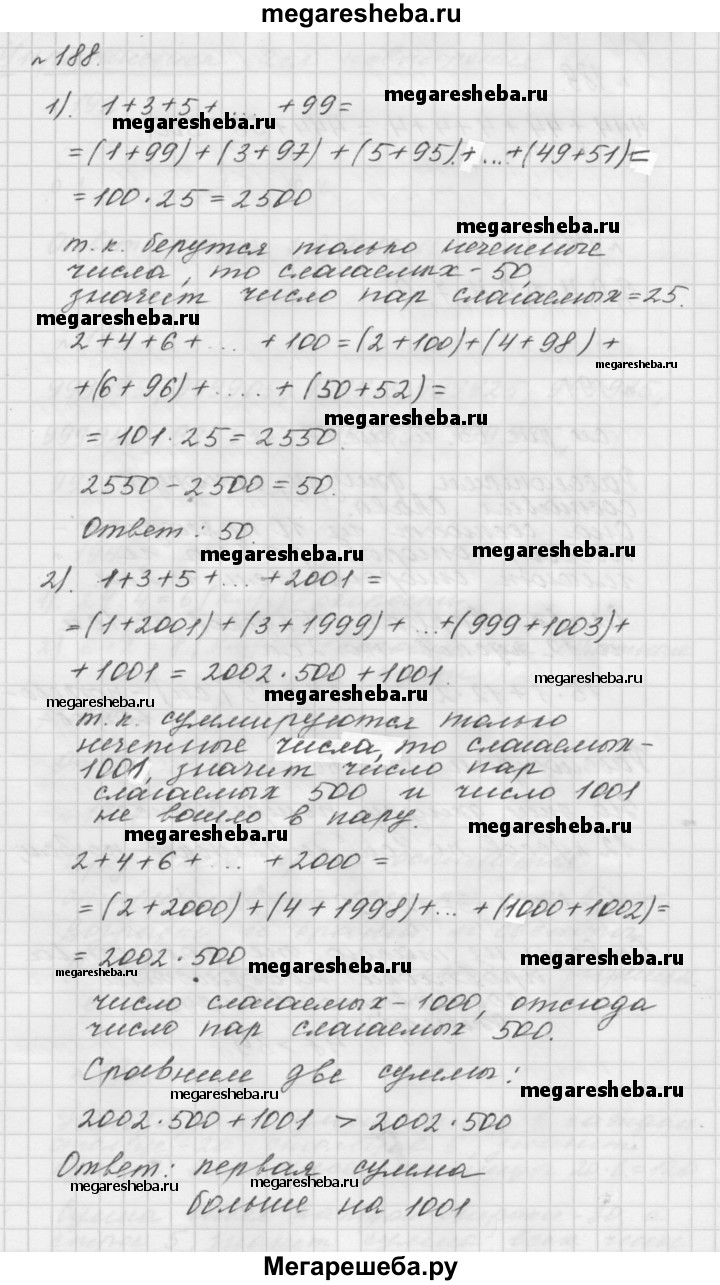 megaresheba.ru
№188.
1). 1+3+5+ ... +99=
megaresheba.ru
megaresheba.ru
=(1+99)+(3+97)+(5+95)+...+(49+51)=
=100·25=2500
megaresheba.ru
т.к. берутся только нечетные
числа, то слагаемых-50,
значит число пар слагаемых=25.
megaresheba.ru
2+4+6+ ... +100=(2+100)+(4+98)+
megaresheba.ru
+(6+96)+ .... +(50+52)=
megaresheba.ru
= 101·25=2550.
2550-2500=50.
Ответ: 50.
megaresheba.ru
megaresheba.ru
2). 1+3+5+ ... +2001 =
=(1+2001)+(3+1999)+ ...+(999+1003)+
+1001 = 2002·500+1001.
megaresheba.ru
megaresheba.ru
megaresheba.ru
т.к. суммируются только
нечетные числа, то слагаемых-
1001, значит число пар
слагаемых 500 и число 1001
не вошло в пару.
megaresheba.ru
megaresheba.ru
2+4+6+ ... +2000 =
=(2+2000)+(4+1998)+... +(1000+1002)=
= 2002·500
megaresheba.ru
megaresheba.ru
megaresheba.ru
число слагаемых-1000, отсюда
число пар слагаемых 500.
Сравним две суммы:
megaresheba.ru
megaresheba.ru
2002·500+1001 > 2002·500
Ответ: первая сумма
megaresheba.ru
megaresheba.ru
больше на 1001
Мегарешеба.ру